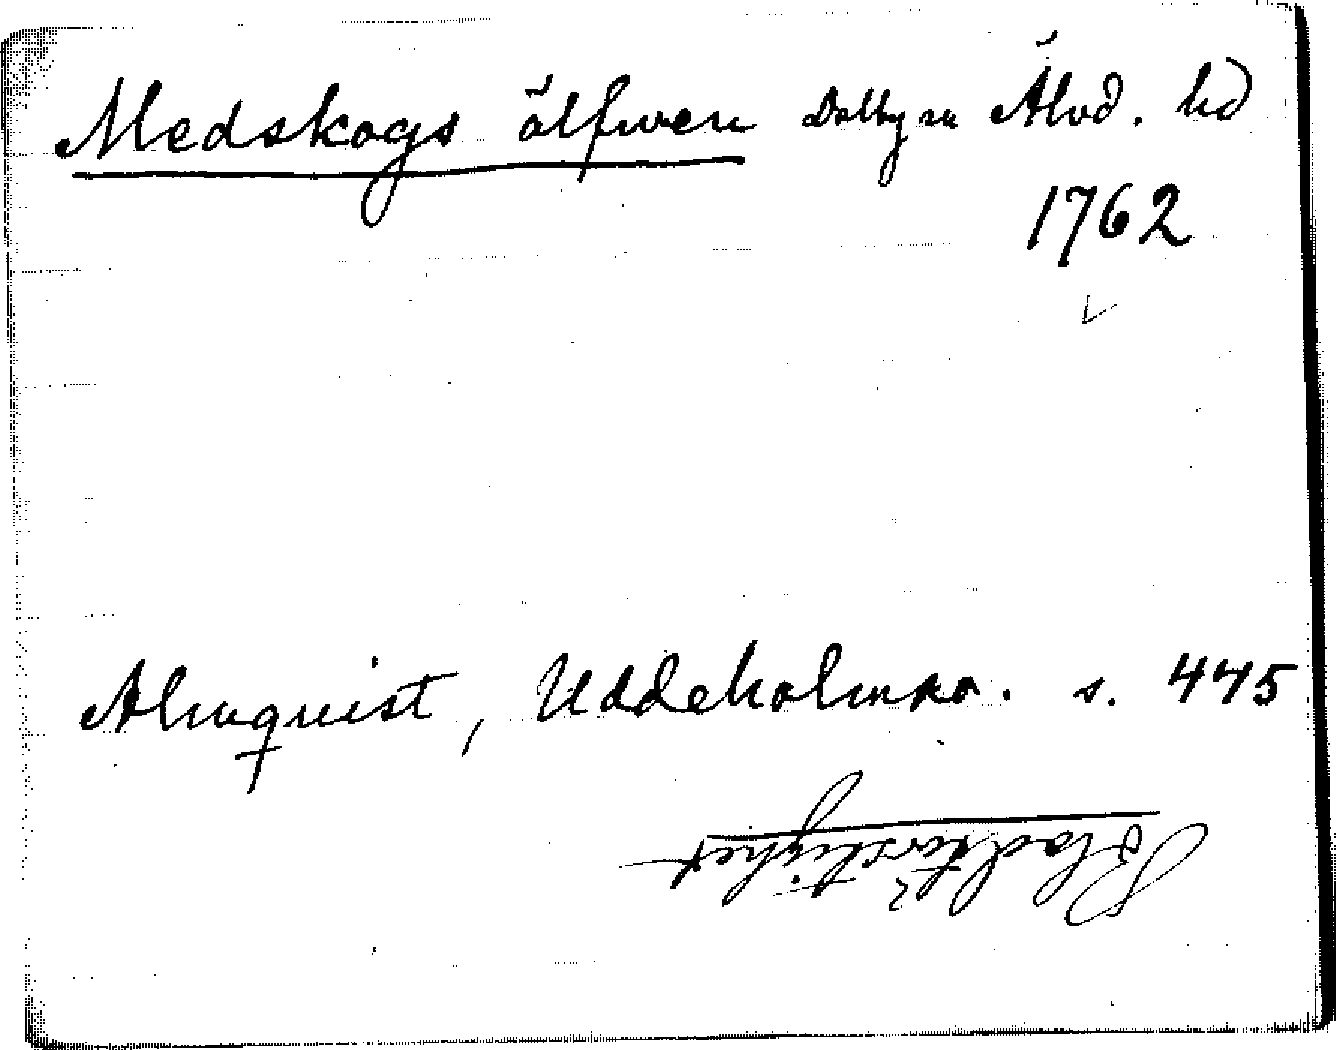 Medskogs älfwen Dalby sn Älvd. hd
1762
Almquist, Uddeholmsv. s. 445
Blodtörstighet